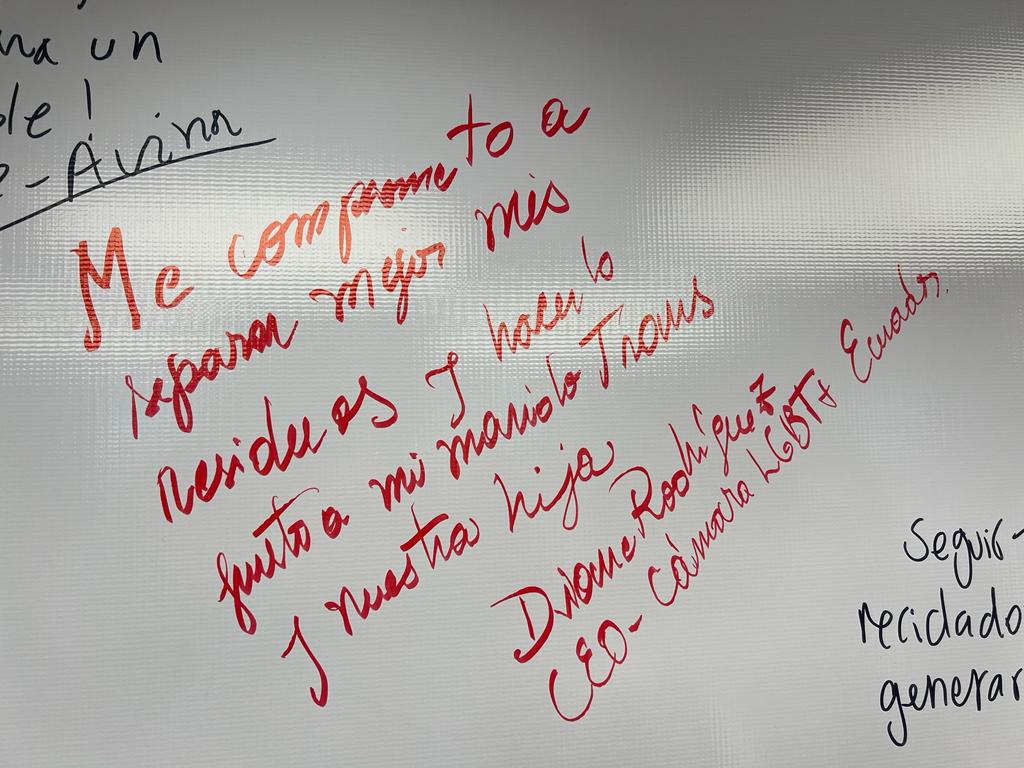 na un
ble!
e-Avina
Me comprometo a
separar mejor mis
residuos y hacerlo
junto a mi marido Trans
y nuestra hija
Diane Rodríguez
CEO- Cámara LGBT+ Ecuador.
Seguir
reciclado
generar